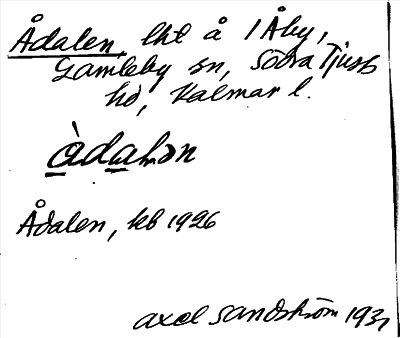 Ådalen, lht å 1 Åby,
Gamleby sn, Södra Tjusts
hd, Kalmar l.
Ådalen, kb 1926
Axel Sandström 193